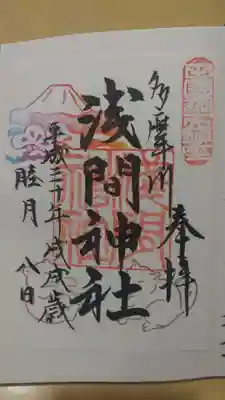 奉拝
多摩川
浅間神社
平成三十年 戊戌歳
睦月 八日